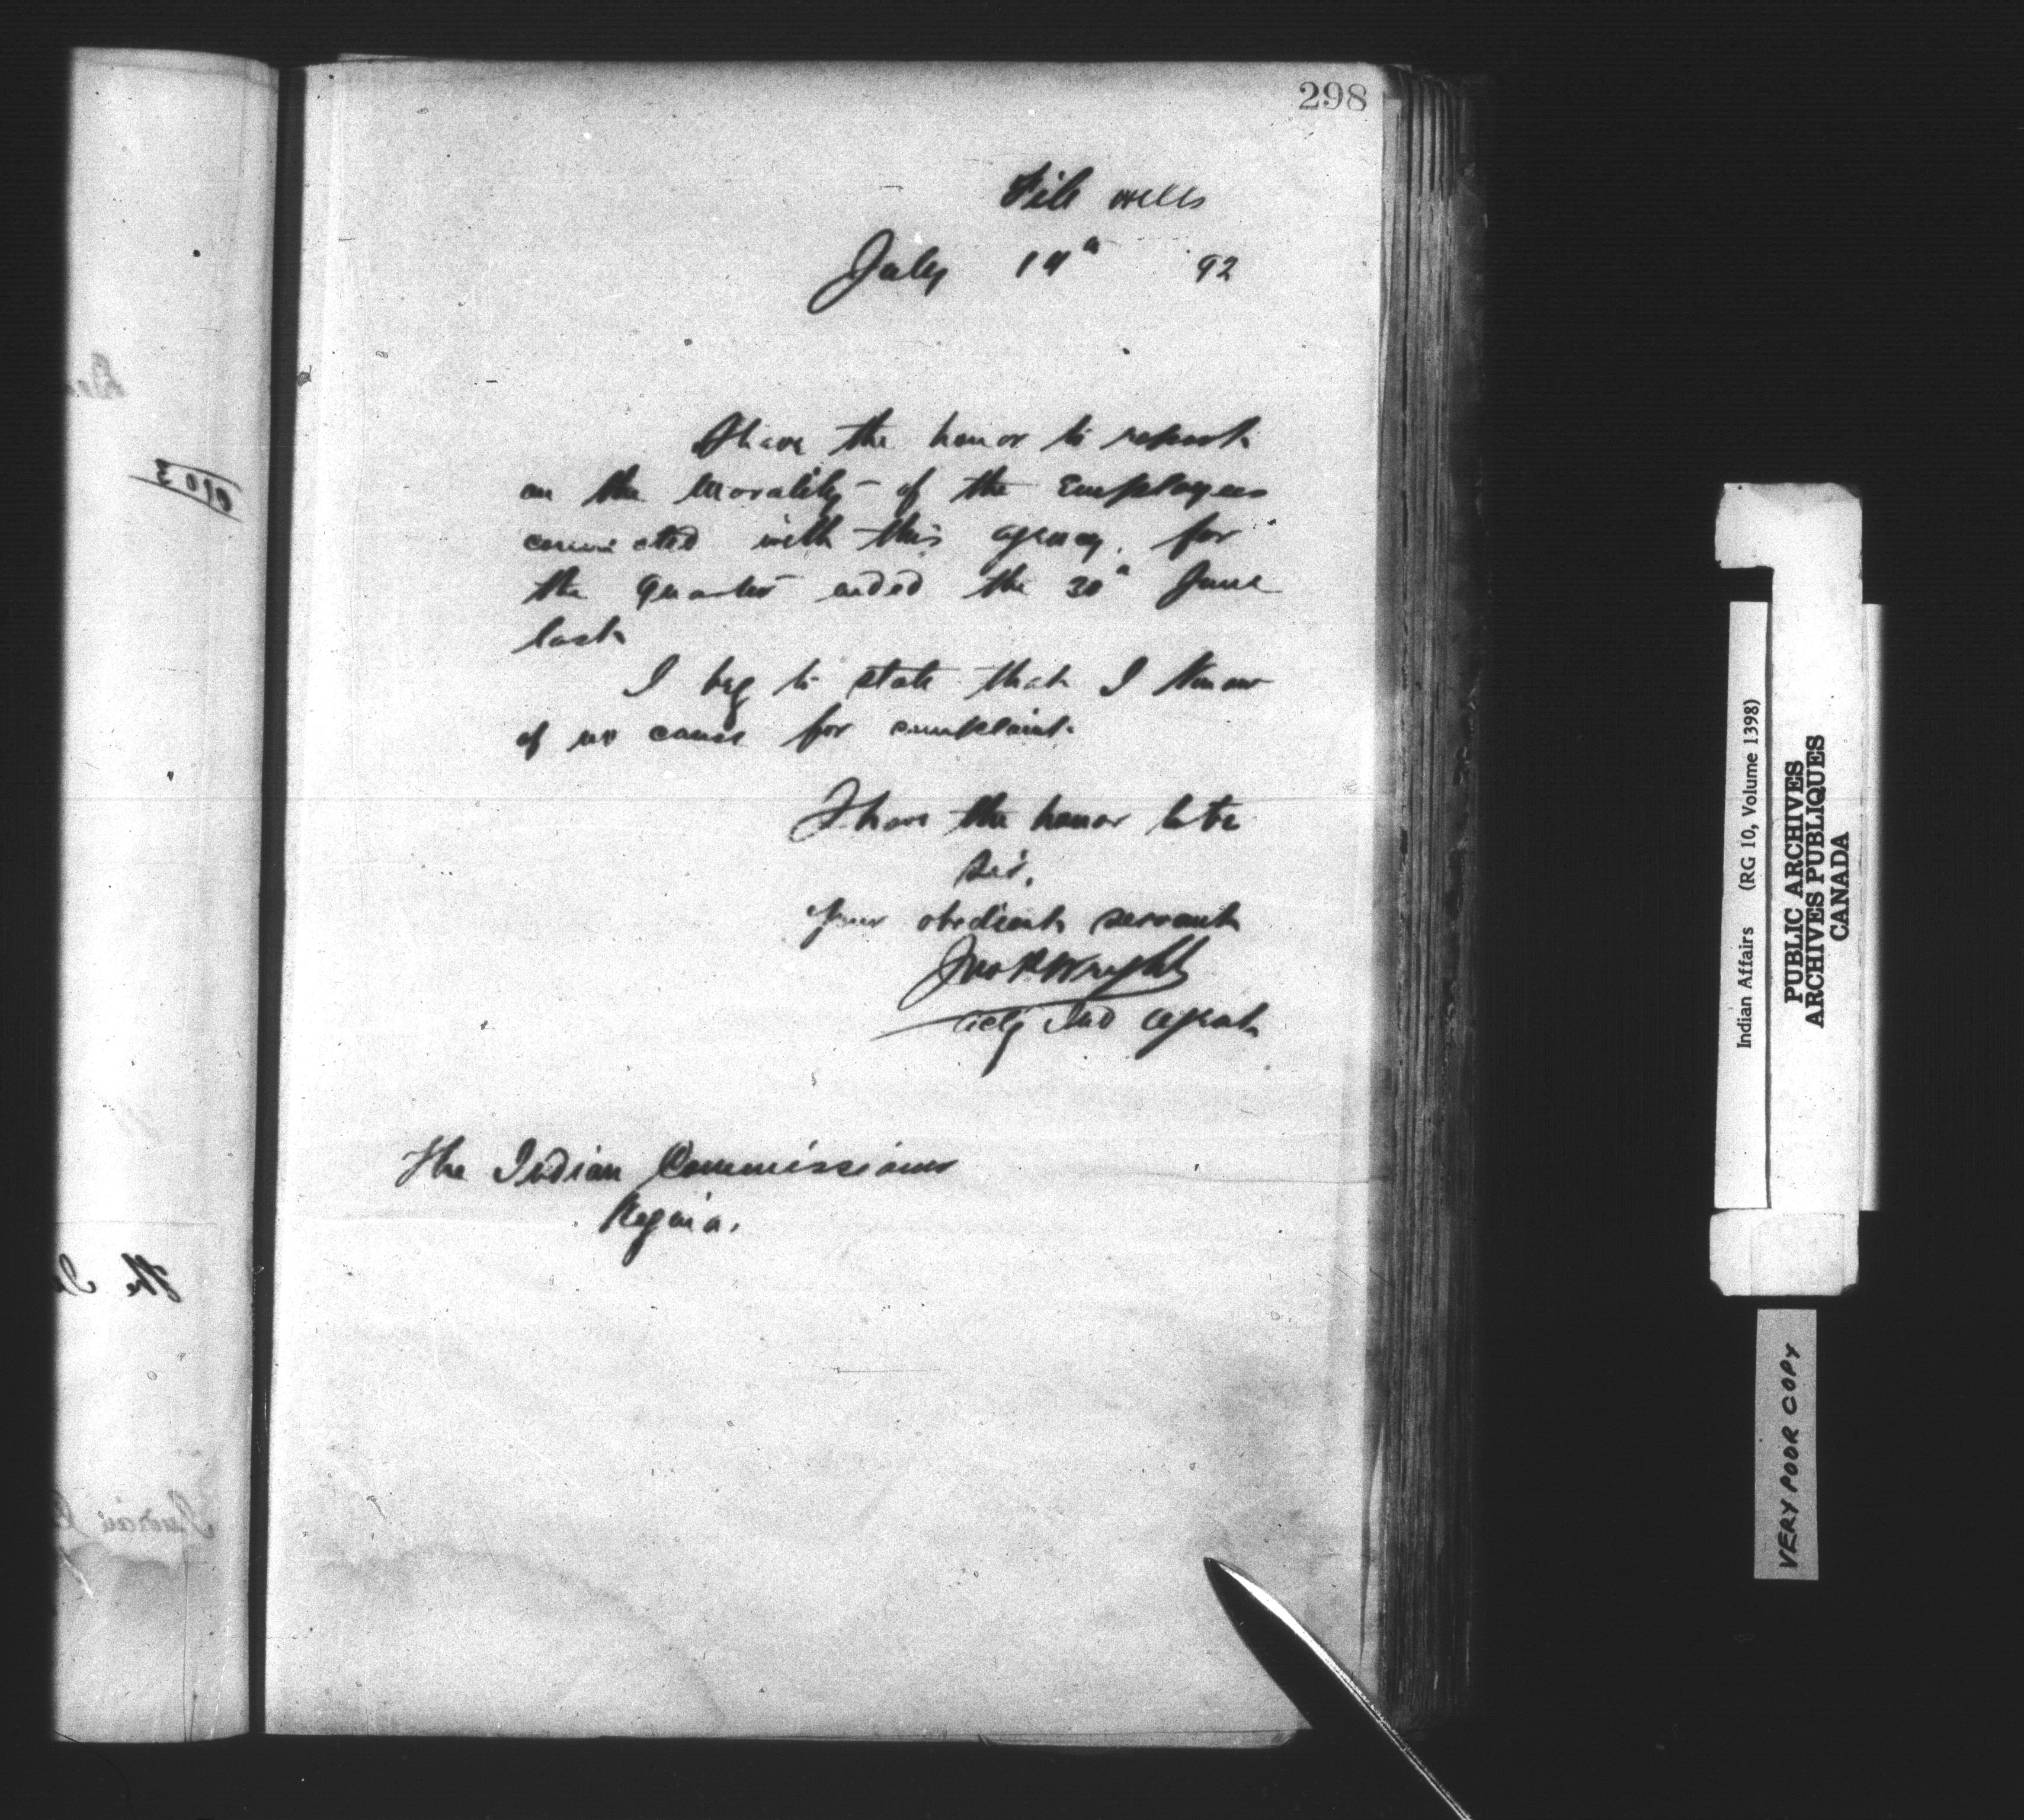 298
File Hills
July 19th 92
I have the honor to report
on the Morality of the Employees
connected with this agency, for
the quarter ended the 30th June
last
I beg to state that I Know
of no cause for complaint.
I have the honor to be
Sir,
Your obedient servant
Jno P Wright
Actg Ind Agent
The Indian Commissioner
Regina.
Indian Affairs (RG 10, Volume 1398)
PUBLIC ARCHIVES
ARCHIVES PUBLIQUES
CANADA
VERY POOR COPY